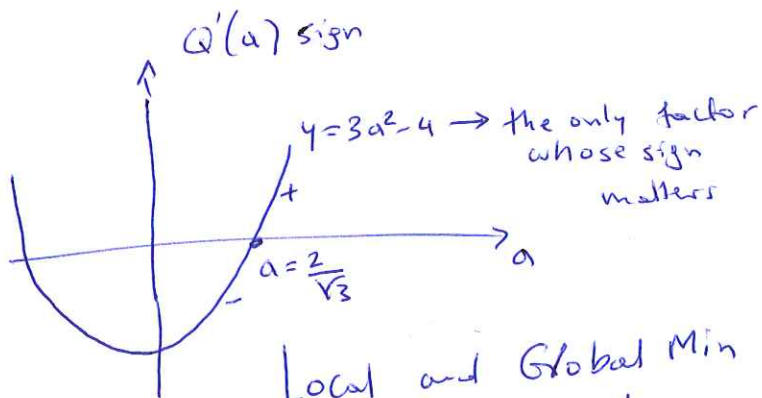 Q'(a) sign
y=3a²-4 → the only factor
whose sign
matters
+
a
a=2/√3
-
Local and Global Min